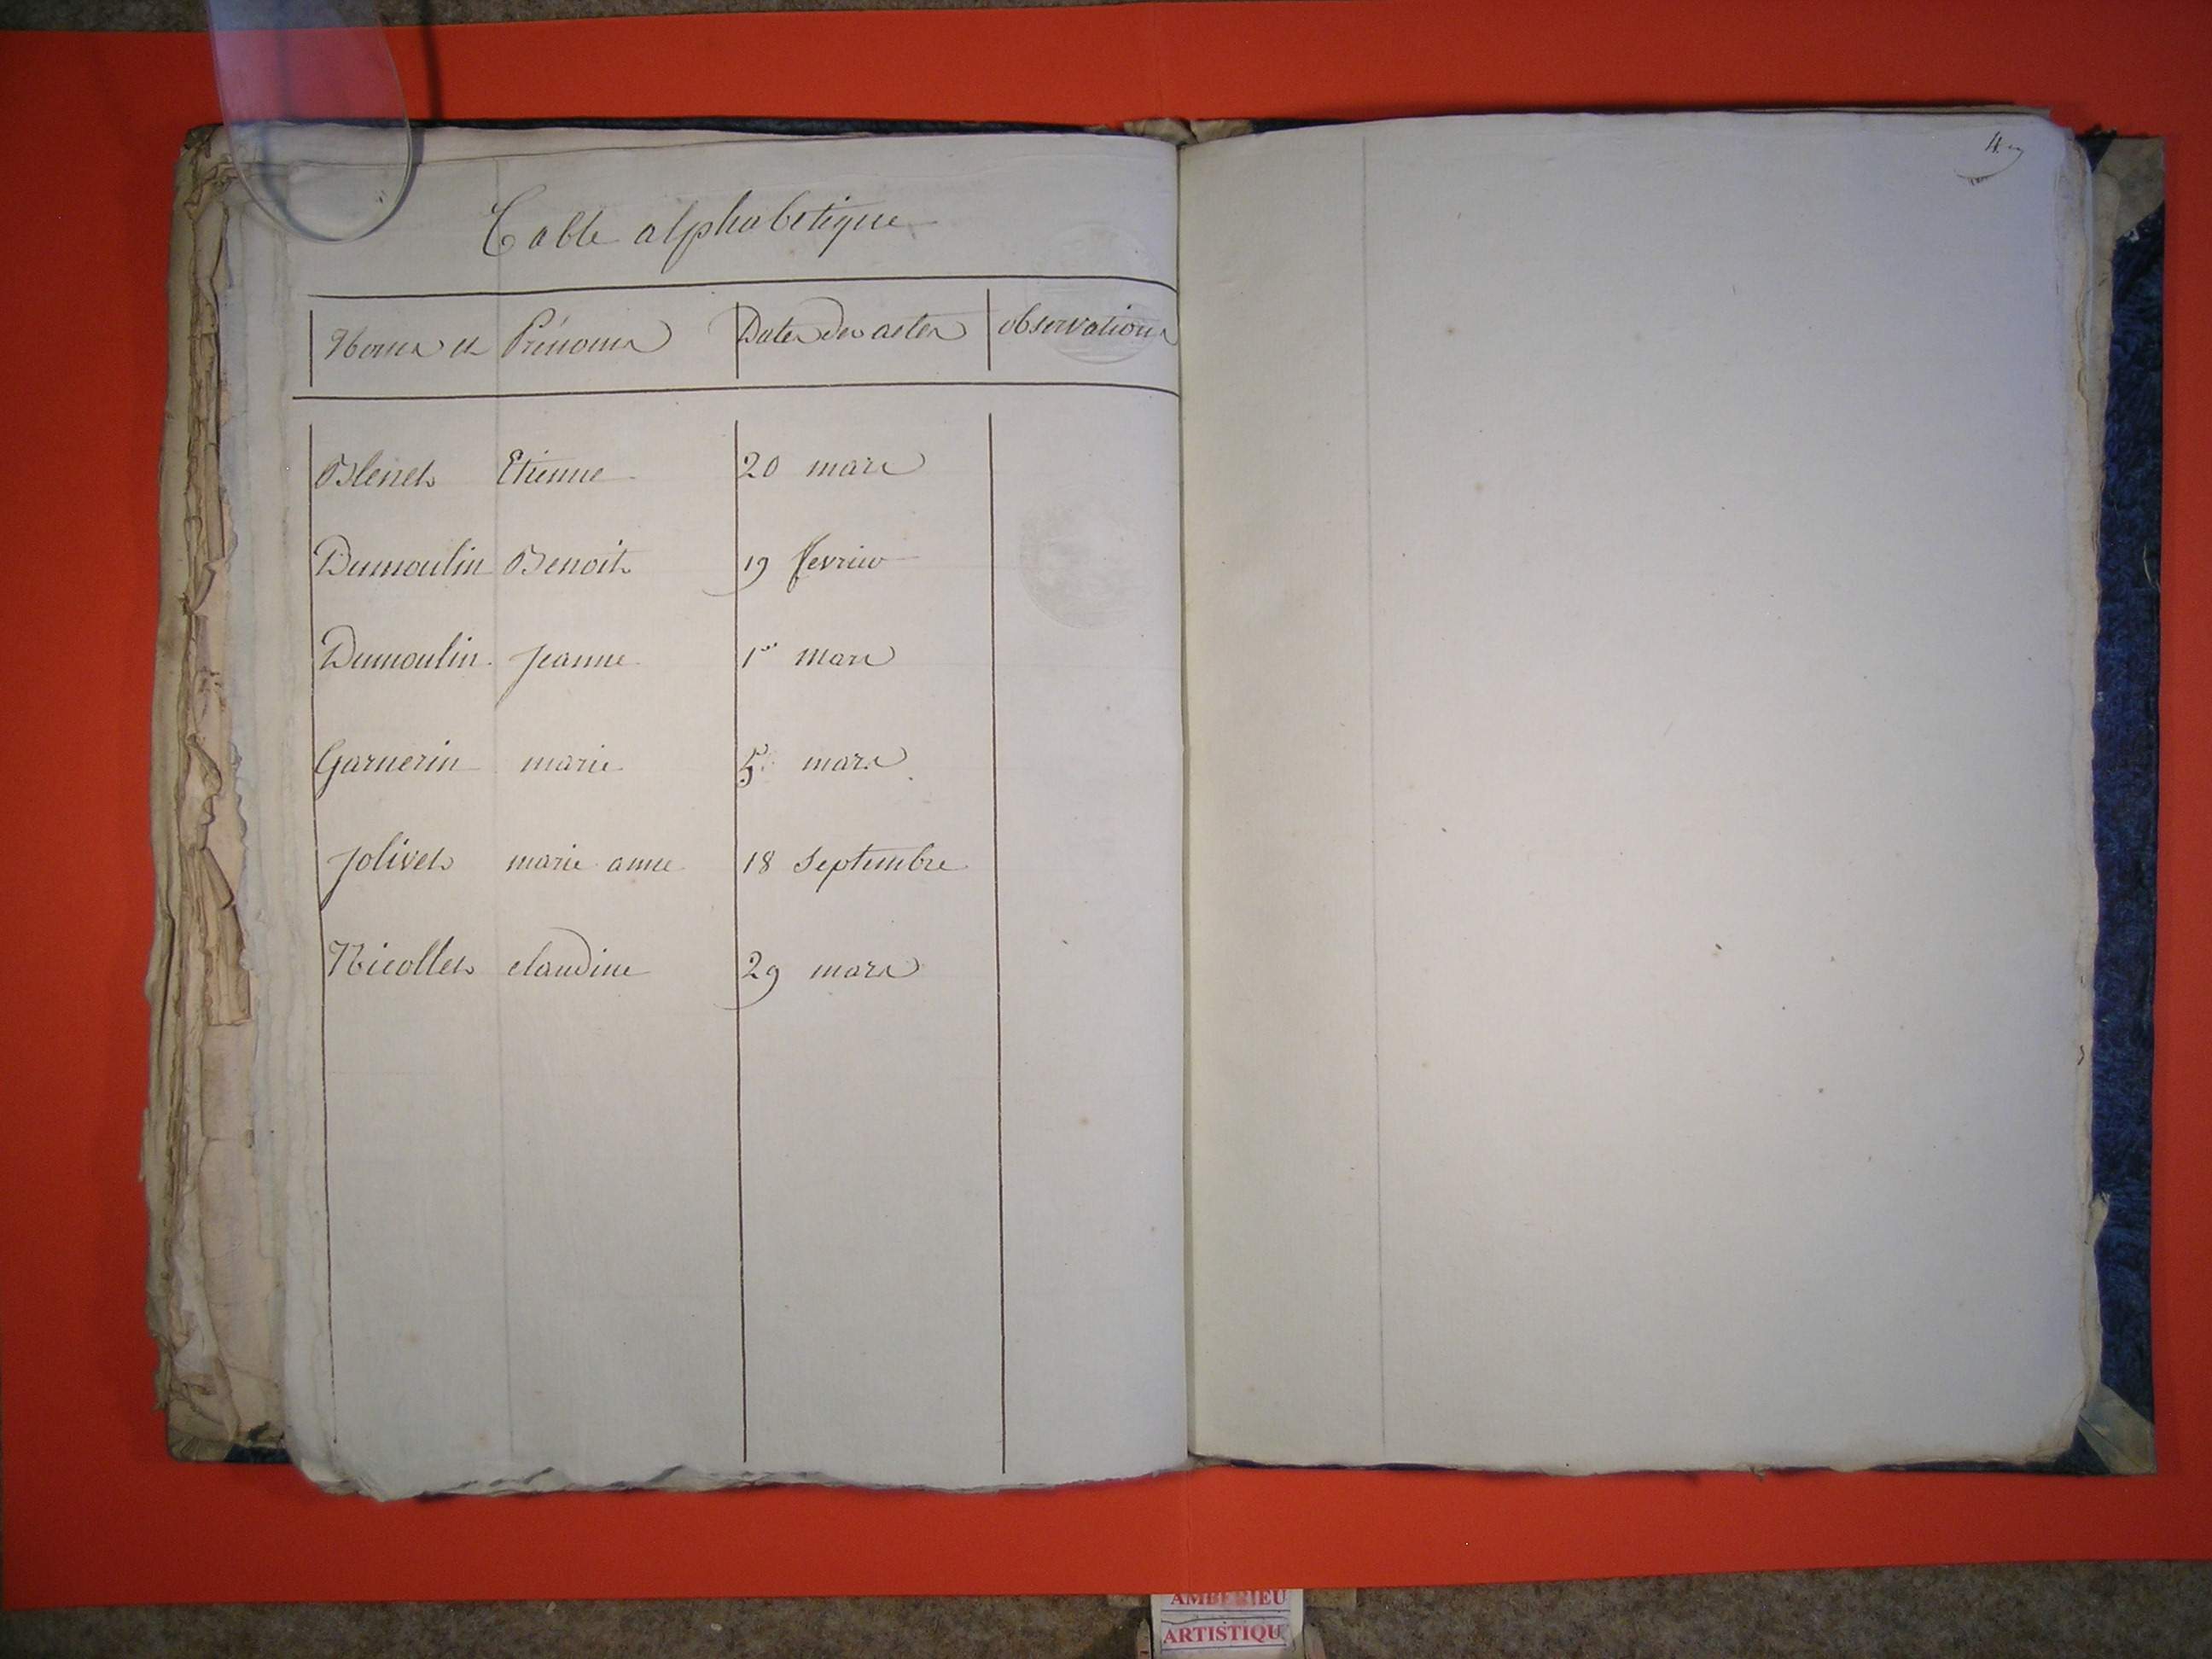 Table alphabetique
Noms et Prénoms Dates des actes observations
Blenet Etienne 20 mars
Dumoulin Benoit 19 fevrier
Dumoulin Jeanne 1er mars
Garnerin marie 5 mars
Jolivet marie anne 18 Septembre
Nicollet claudine 29 mars
AMBERIEU
ARTISTIQU